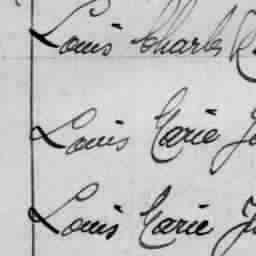 Louis Charles
Louis Marie
Louis Marie